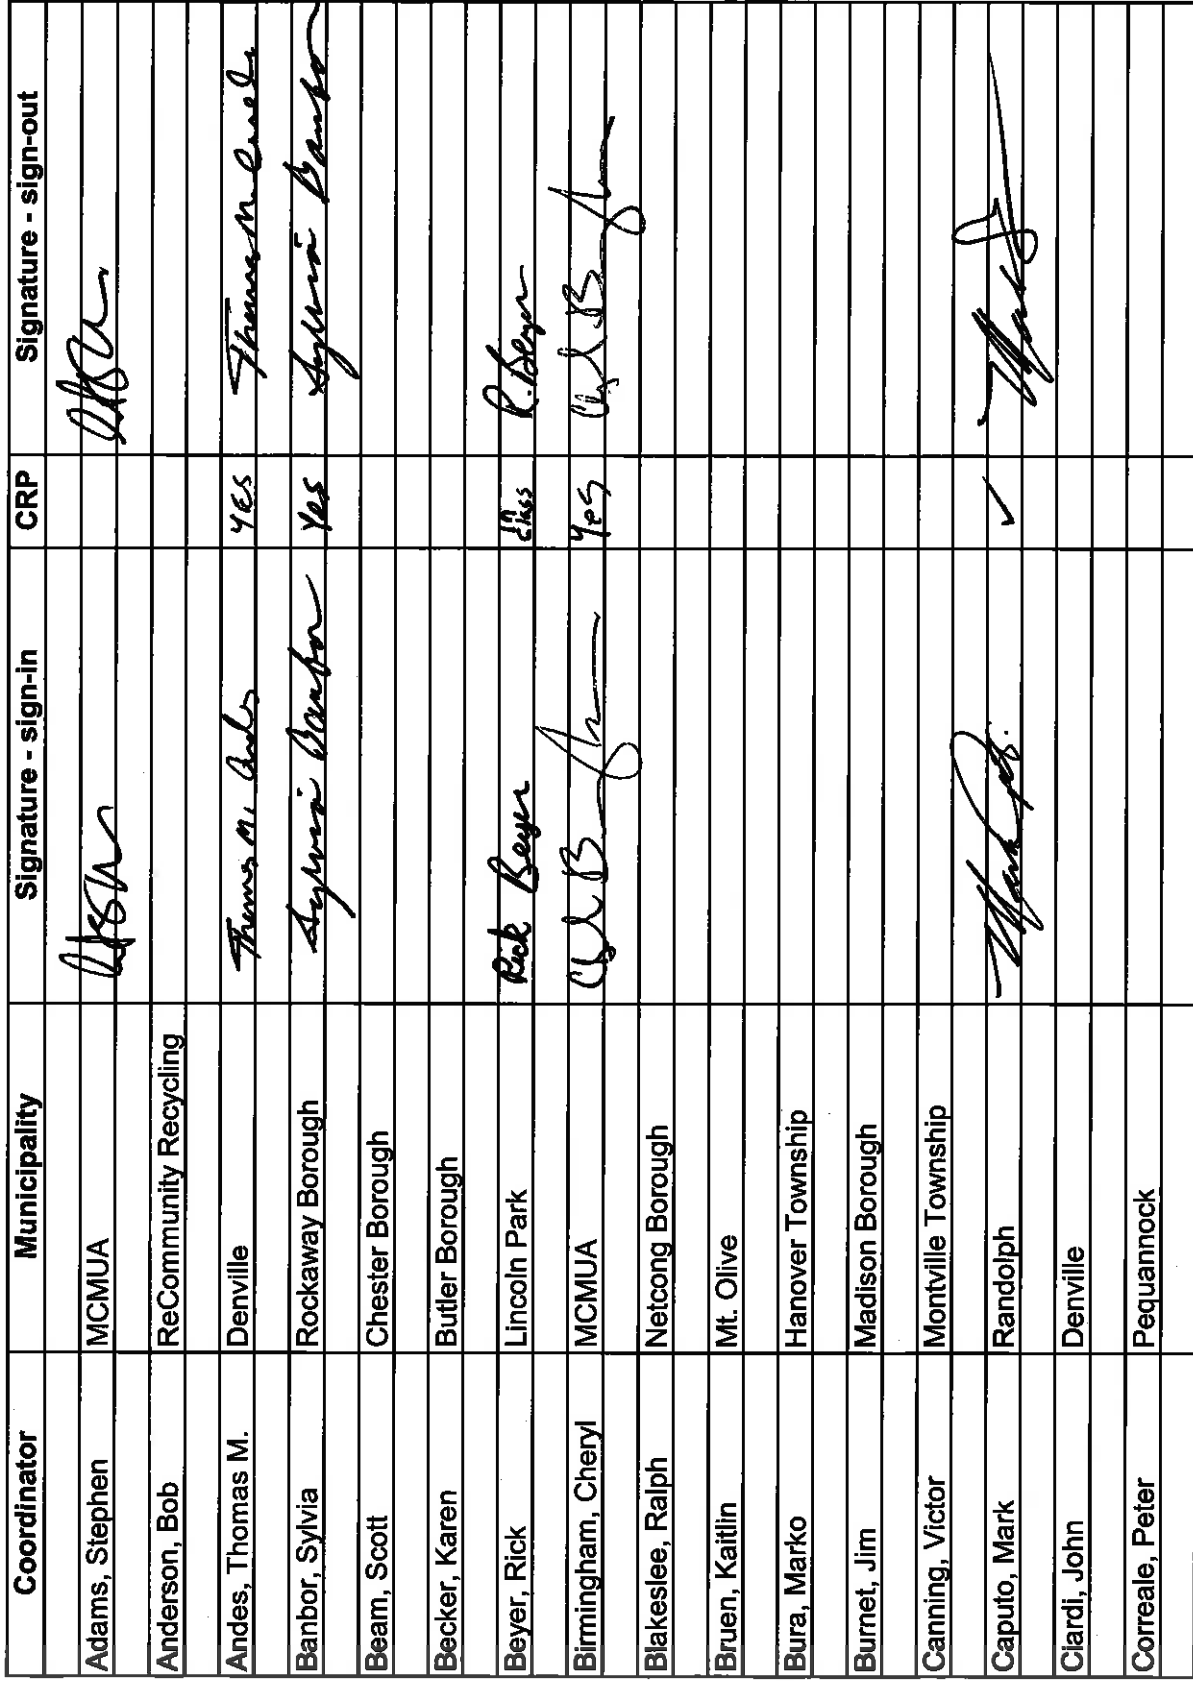 Coordinator Municipality Signature - sign-in CRP Signature - sign-out
Adams, Stephen MCMUA
Anderson, Bob ReCommunity Recycling
Andes, Thomas M. Denville Thomas M. Andes YES Thomas M. Andes
Banbor, Sylvia Rockaway Borough Sylvia Banbor Yes Sylvia Banbor
Beam, Scott Chester Borough
Becker, Karen Butler Borough
Beyer, Rick Lincoln Park Rick Beyer in class R. Beyer
Birmingham, Cheryl MCMUA Yes
Blakeslee, Ralph Netcong Borough
Bruen, Kaitlin Mt. Olive
Bura, Marko Hanover Township
Burnet, Jim Madison Borough
Canning, Victor Montville Township
Caputo, Mark Randolph ✓
Ciardi, John Denville
Correale, Peter Pequannock